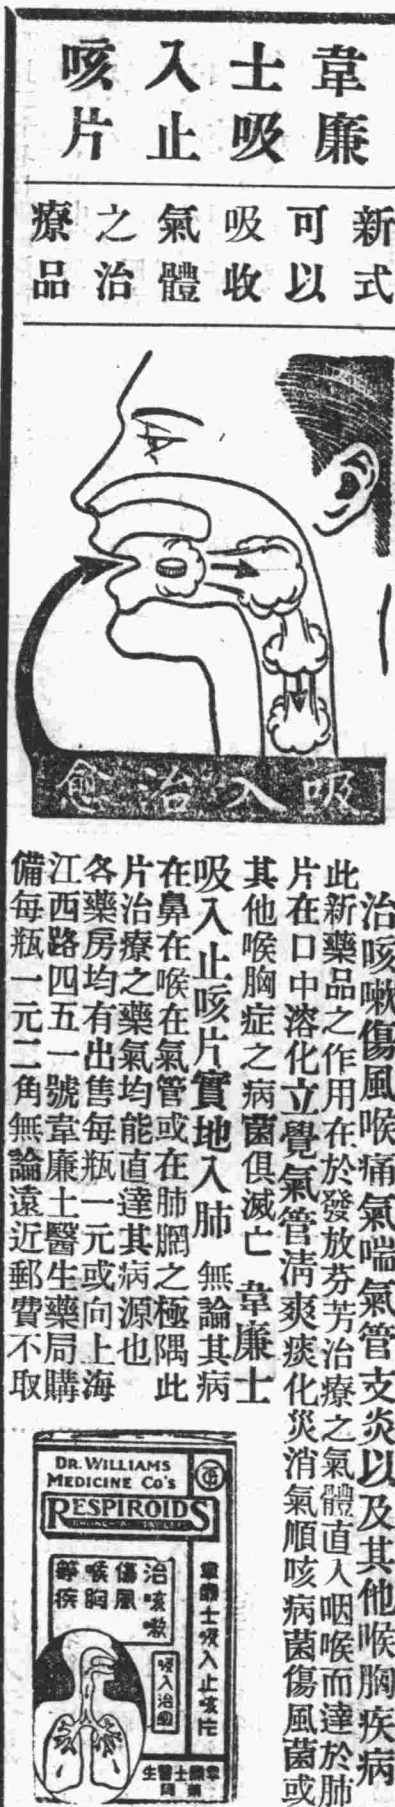 韋廉士吸入止咳片
新式可以吸收氣體之治療品
吸入治愈
治咳嗽傷風喉痛氣喘氣管支炎以及其他喉胸疾病
此新藥品之作用在於發放芬芳治療之氣體直入咽喉而達於肺
片在口中溶化立覺氣管清爽痰化災消氣順咳病菌傷風菌或
其他喉胸症之病菌俱滅亡 韋廉士
吸入止咳片實地入肺 無論其病
在鼻在喉在氣管或在肺膶之極隅此
片治療之藥氣均能直達其病源也
各藥房均有出售每瓶一元或向上海
江西路四五一號韋廉士醫生藥局購
備每瓶一元二角無論遠近郵費不取
DR. WILLIAMS
MEDICINE CO'S
RESPIROIDS
韋廉士吸入止咳片
治咳嗽
傷風
喉胸
等疾
吸入治愈
韋廉士醫生
藥局